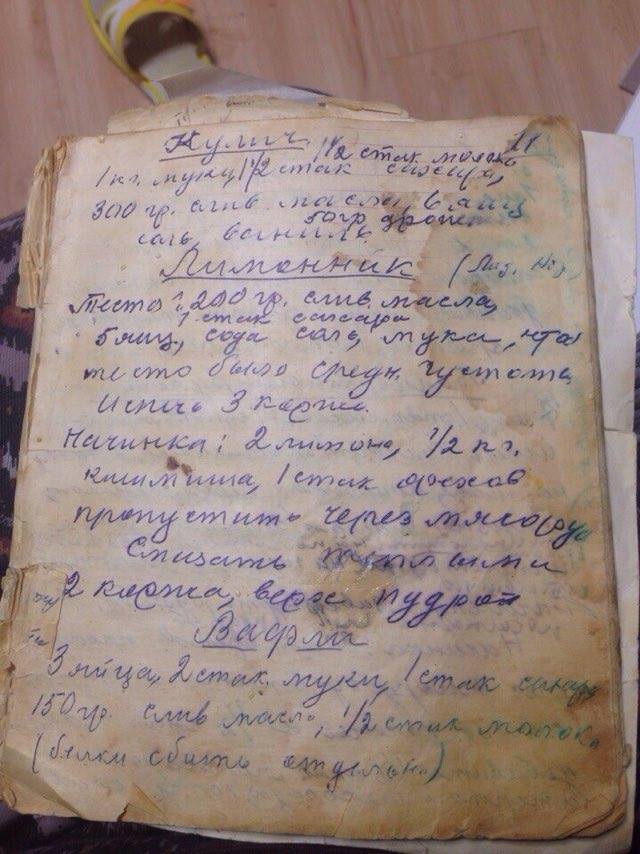 11
Кулич 1 1/2 стак молока
1 кг. муки, 1 1/2 стак сахара,
300 гр. слив масла, 6 яиц
50 гр дрож
соль, ваниль
Лимонник
Тесто: 200 гр. слив. масла,
1 стак сахара
5 яиц, сода соль, мука, чтоб
тесто было средн. густоты
Испечь 3 коржа.
Начинка: 2 лимона, 1/2 кг.
кишмиша, 1 стак орехов
пропустить через мясору
Смазать теплыми
2 коржа, верх пудрой
Вафли
3 яйца, 2 стак. муки, 1 стак сахара
150 гр. слив масло, 1/2 стак молока
(белки сбить отдельно)